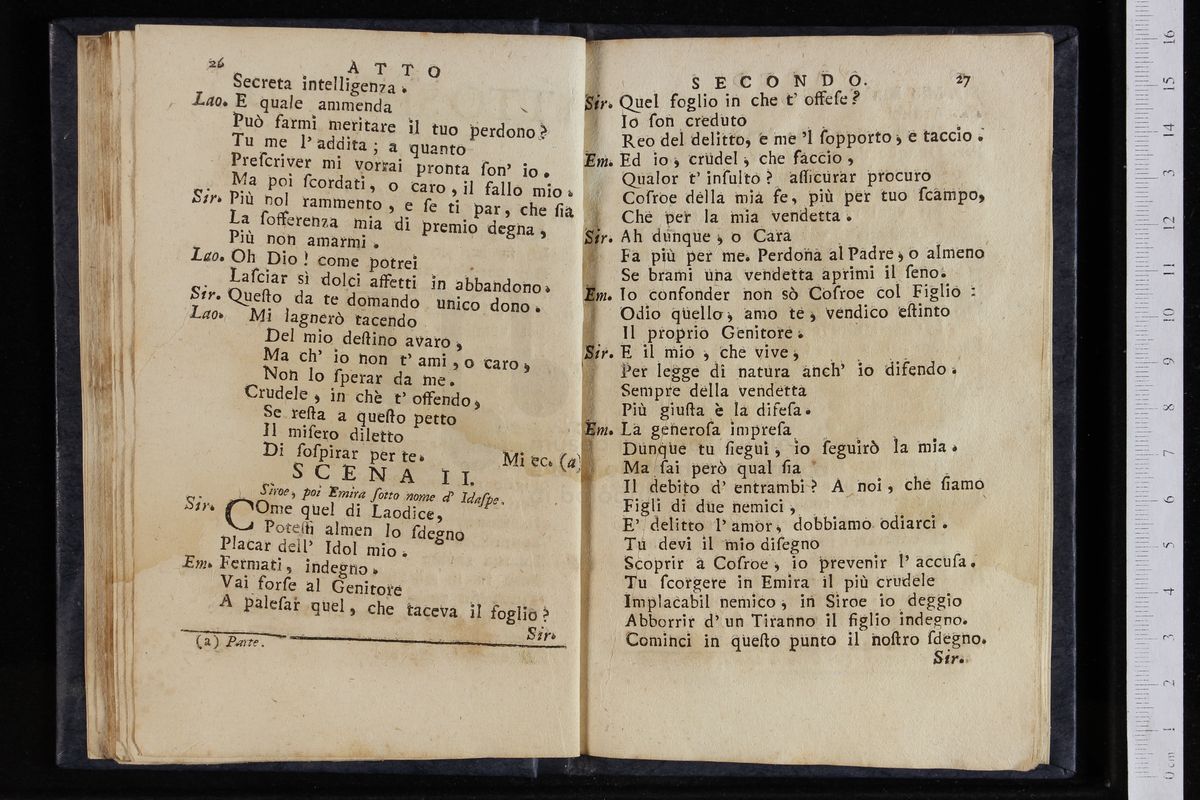 26 ATTO
Secreta intelligenza.
Lao. E quale ammenda
Può farmi meritare il tuo perdono?
Tu me l'addita; a quanto
Preſcriver mi vorrai pronta ſon' io.
Ma poi ſcordati, o caro, il fallo mio.
Sir. Più nol rammento, e ſe ti par, che ſia
La ſofferenza mia di premio degna,
Più non amarmi.
Lao. Oh Dio! come potrei
Laſciar sì dolci affetti in abbandono.
Sir. Queſto da te domando unico dono.
Lao. Mi lagnerò tacendo
Del mio deſtino avaro,
Ma ch' io non t' ami, o caro,
Non lo ſperar da me.
Crudele, in chè t' offendo,
Se reſta a queſto petto
Il miſero diletto
Di ſoſpirar per te. Mi ec. (a)
SCENA II.
Siroe, poi Emira ſotto nome d' Idaſpe.
Sir. COme quel di Laodice,
Poteſſi almen lo ſdegno
Placar dell' Idol mio.
Em. Fermati, indegno.
Vai forſe al Genitore
A paleſar quel, che taceva il foglio?
Sir.
(a) Parte.
SECONDO. 27
Sir. Quel foglio in che t' offeſe?
Io ſon creduto
Reo del delitto, e me 'l ſopporto, e taccio.
Em. Ed io, crudel, che faccio,
Qualor t' inſulto? aſſicurar procuro
Coſroe della mia fe, più per tuo ſcampo,
Che per la mia vendetta.
Sir. Ah dunque, o Cara
Fa più per me. Perdona al Padre, o almeno
Se brami una vendetta aprimi il ſeno.
Em. Io confonder non sò Coſroe col Figlio:
Odio quello, amo te, vendico eſtinto
Il proprio Genitore.
Sir. E il mio, che vive,
Per legge di natura anch' io difendo.
Sempre della vendetta
Più giuſta è la difeſa.
Em. La generoſa impreſa
Dunque tu ſiegui, io ſeguirò la mia.
Ma ſai però qual ſia
Il debito d' entrambi? A noi, che ſiamo
Figli di due nemici,
E' delitto l' amor, dobbiamo odiarci.
Tu devi il mio diſegno
Scoprir a Coſroe, io prevenir l' accuſa.
Tu ſcorgere in Emira il più crudele
Implacabil nemico, in Siroe io deggio
Abborrir d' un Tiranno il figlio indegno.
Cominci in queſto punto il noſtro ſdegno.
Sir.
0 cm 1 2 3 4 5 6 7 8 9 10 11 12 13 14 15 16